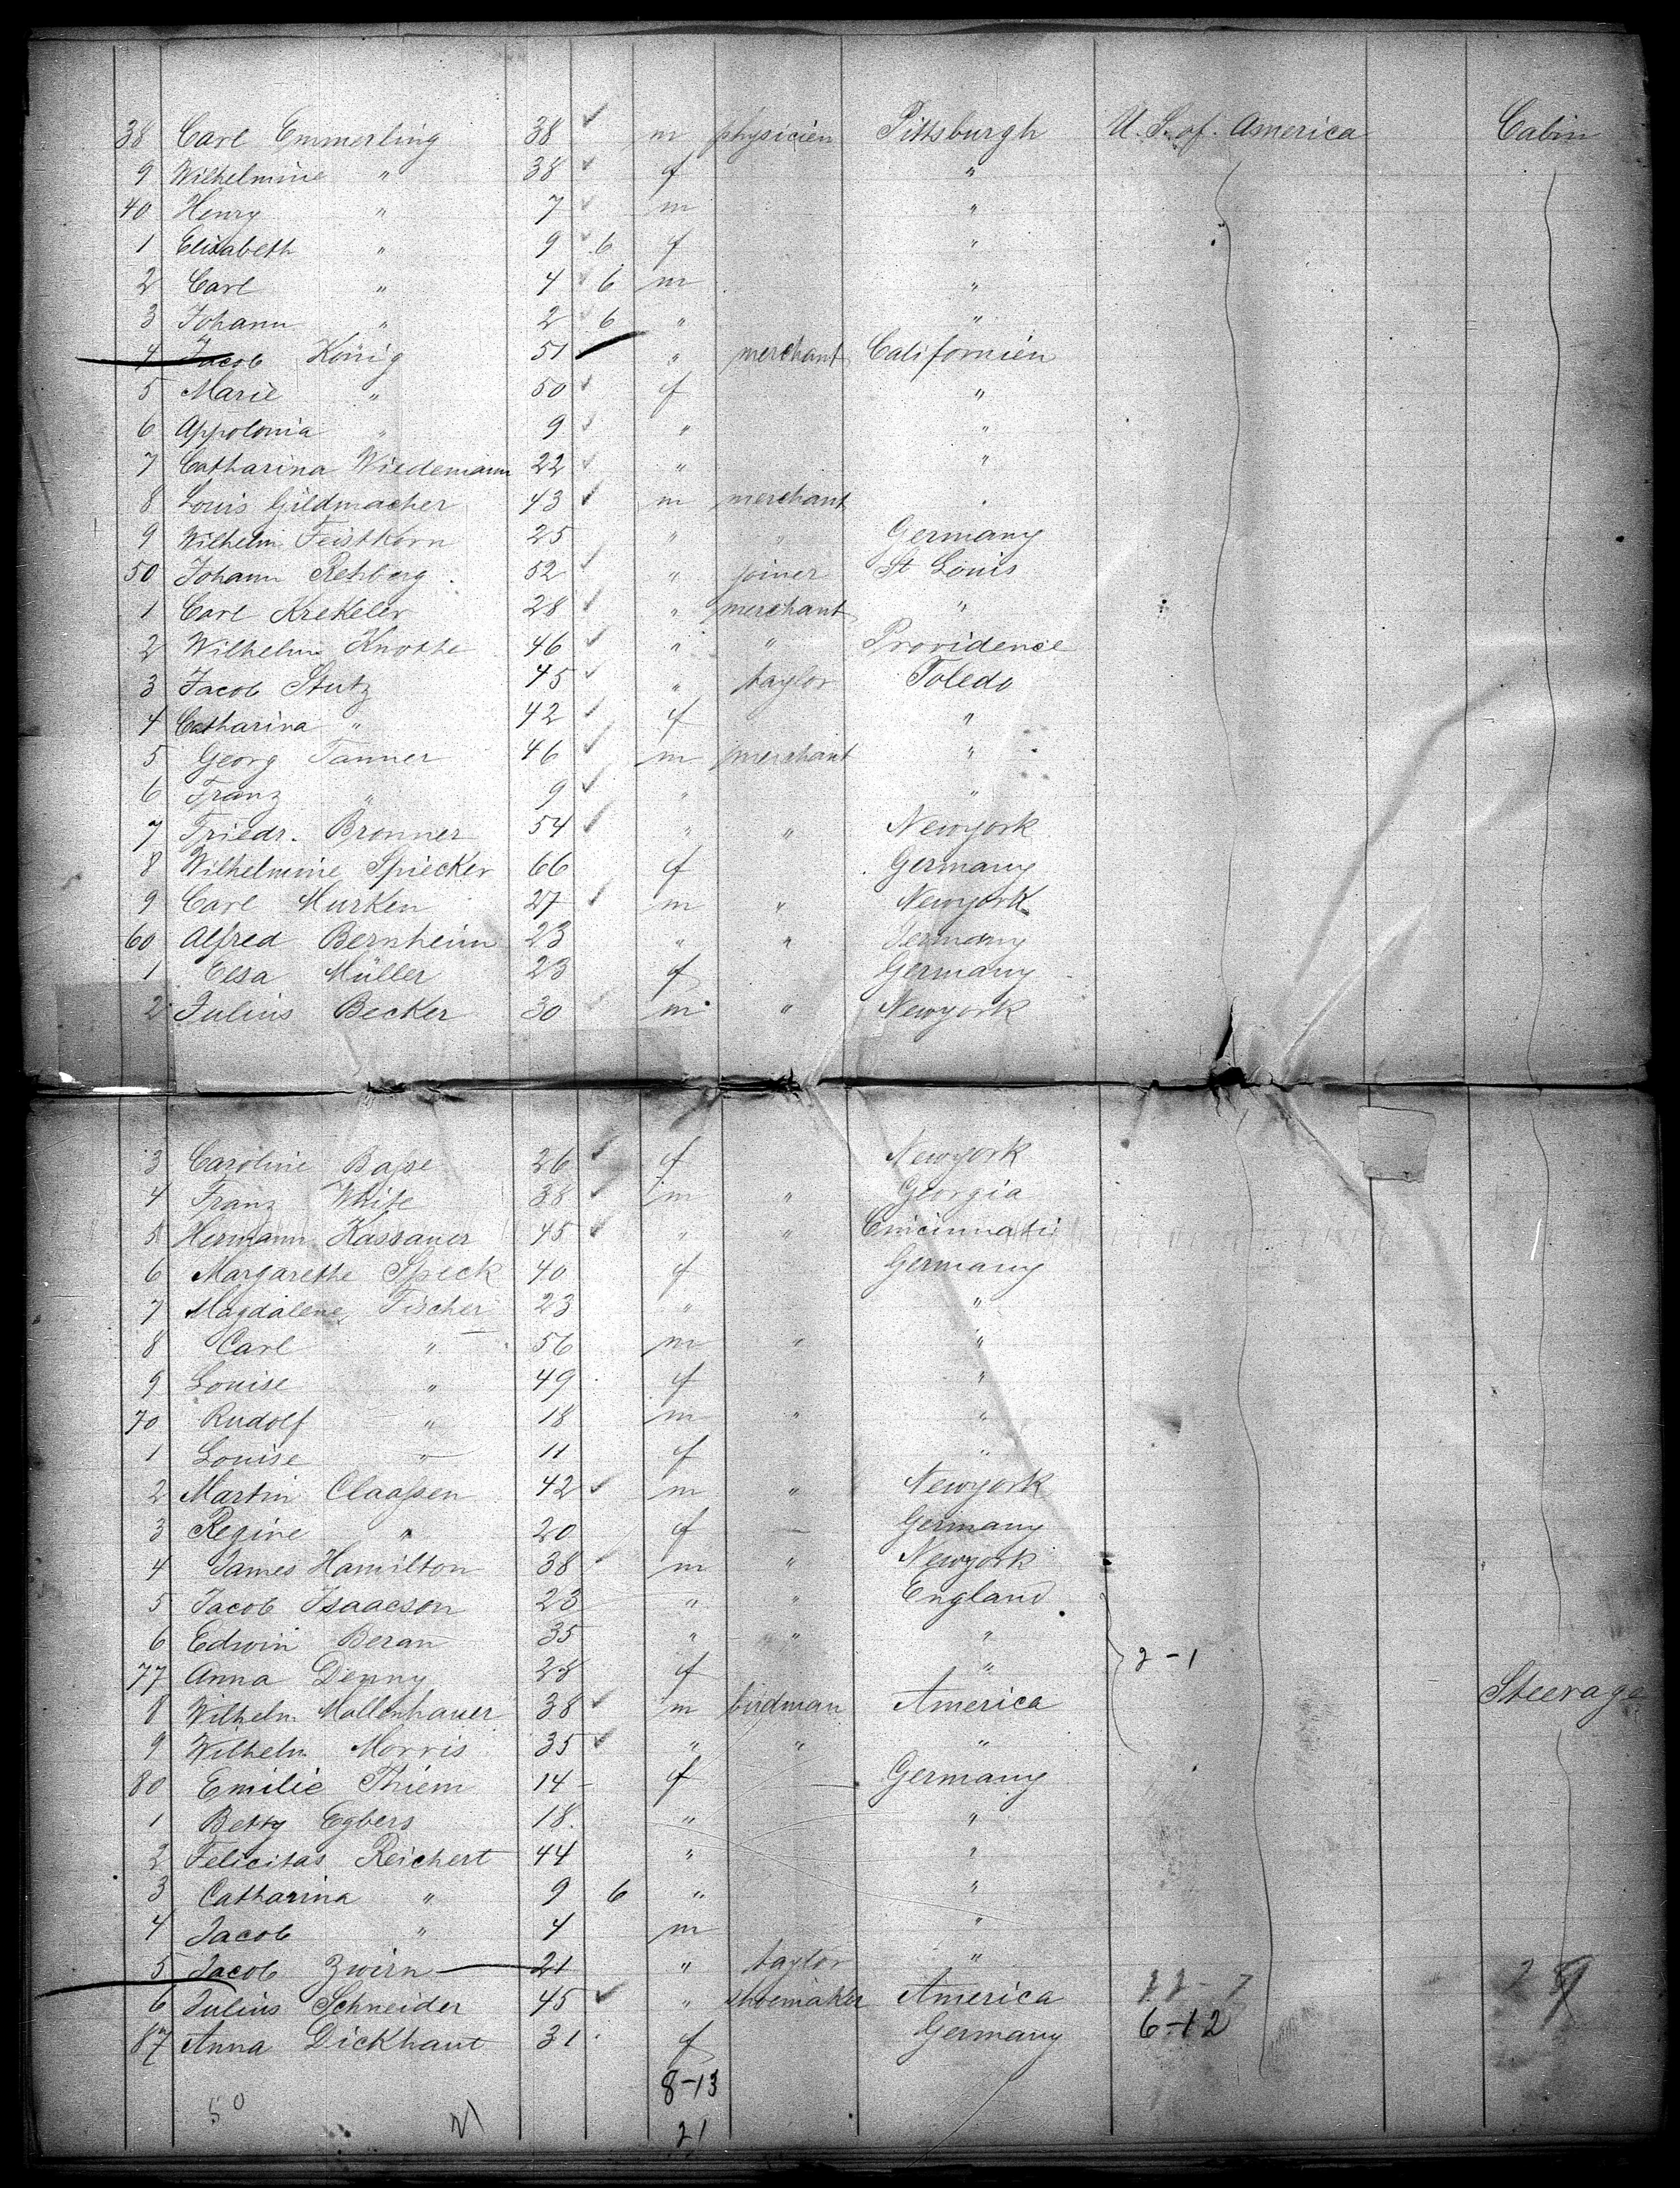 38 Carl Emmerling 38 ✓ m physicien Pittsburgh U. S. of. America Cabin
9 Wilhelmine " 38 ✓ f "
40 Henry " 7 ✓ m "
1 Elisabeth " 9 ✓ 6 f "
2 Carl " 4 ✓ 6 m "
3 Johann " 2 ✓ 6 " "
4 Jacob König 51 " merchant Californien
5 Marie " 50 ✓ f "
6 Appolonia " 9 ✓ " "
7 Catharina Wiedemann 22 ✓ " "
8 Louis Gildmacher 43 ✓ m merchant "
9 Wilhelm Feistkorn 25 " " Germany
50 Johann Rehberg 52 ✓ " joiner St Louis
1 Carl Krekeler 28 ✓ " merchant "
2 Wilhelm Knothe 46 ✓ " " Providence
3 Jacob Stutz 45 ✓ " taylor Toledo
4 Catharina " 42 ✓ f "
5 Georg Tanner 46 ✓ m merchant "
6 Franz " 9 ✓ " "
7 Friedr. Bronner 54 ✓ " " Newyork
8 Wilhelmine Spiecker 66 f Germany
9 Carl Murken 27 ✓ m " Newyork
60 Alfred Bernheim 23 " " Germany
1 Elsa Müller 23 f Germany
2 Julius Becker 30 ✓ m " Newyork
3 Caroline Basse 26 ✓ f Newyork
4 Franz White 38 ✓ m " Georgia
5 Hermann Kassauer 45 ✓ " " Cincinnati
6 Margarethe Speck 40 f Germany
7 Magdalene Fischer 23 " "
8 Carl " 56 m " "
9 Louise " 49 f "
70 Rudolf " 18 m " "
1 Louise " 11 f "
2 Martin Claassen 42 ✓ m " Newyork
3 Regine " 20 f — Germany
4 James Hamilton 38 ✓ m " Newyork
5 Jacob Isaacson 23 " " England
6 Edwin Beran 35 " " "
77 Anna Denny 28 f " 2-1
8 Wilhelm Mollenhauer 38 ✓ m birdman America Steerage
9 Wilhelm Morris 35 ✓ " " "
80 Emilie Thiem 14 f Germany
1 Betty Egbers 18 " "
2 Felicitas Reichert 44 " "
3 Catharina " 9 6 " "
4 Jacob " 4 m "
5 Jacob Zwirn 21 " taylor "
6 Julius Schneider 45 ✓ " shoemaker America
87 Anna Dickhaut 31 f Germany 6-12
8-13
50 21 21